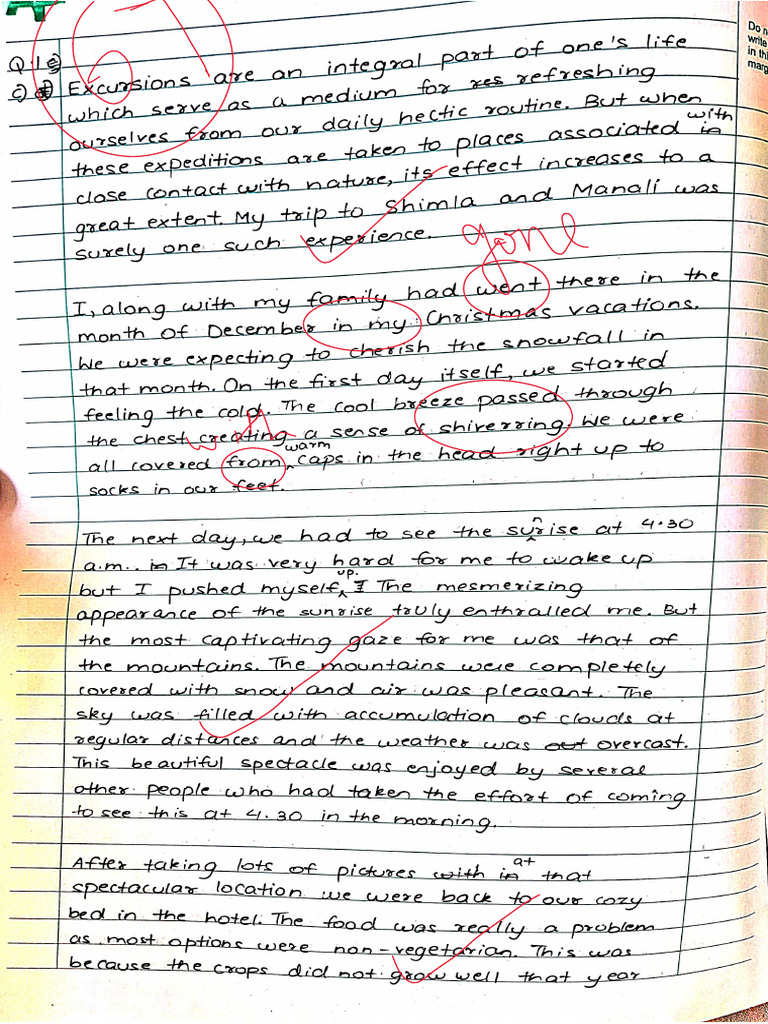 Do n
write
in thi
marg
Q.1
i) Excursions are an integral part of one's life
which serve as a medium for res refreshing
ourselves from our daily hectic routine. But when
these expeditions are taken to places associated in with
close contact with nature, its effect increases to a
great extent. My trip to Shimla and Manali was
surely one such experience.
gone
I, along with my family had went there in the
month of December in my Christmas vacations.
We were expecting to cherish the snowfall in
that month. On the first day itself, we started
feeling the cold. The cool breeze passed through
the chest creating a sense of shiverring. We were
all covered from warm caps in the head right up to
socks in our feet.
The next day, we had to see the sunrise at 4.30
a.m.. in It was very hard for me to wake up
but I pushed myself up. I The mesmerizing
appearance of the sunrise truly enthralled me. But
the most captivating gaze for me was that of
the mountains. The mountains were completely
covered with snow and air was pleasant. The
sky was filled with accumulation of clouds at
regular distances and the weather was out overcast.
This beautiful spectacle was enjoyed by several
other people who had taken the effort of coming
to see this at 4.30 in the morning.
After taking lots of pictures with in at that
spectacular location we were back to our cozy
bed in the hotel. The food was really a problem
as most options were non-vegetarian. This was
because the crops did not grow well that year